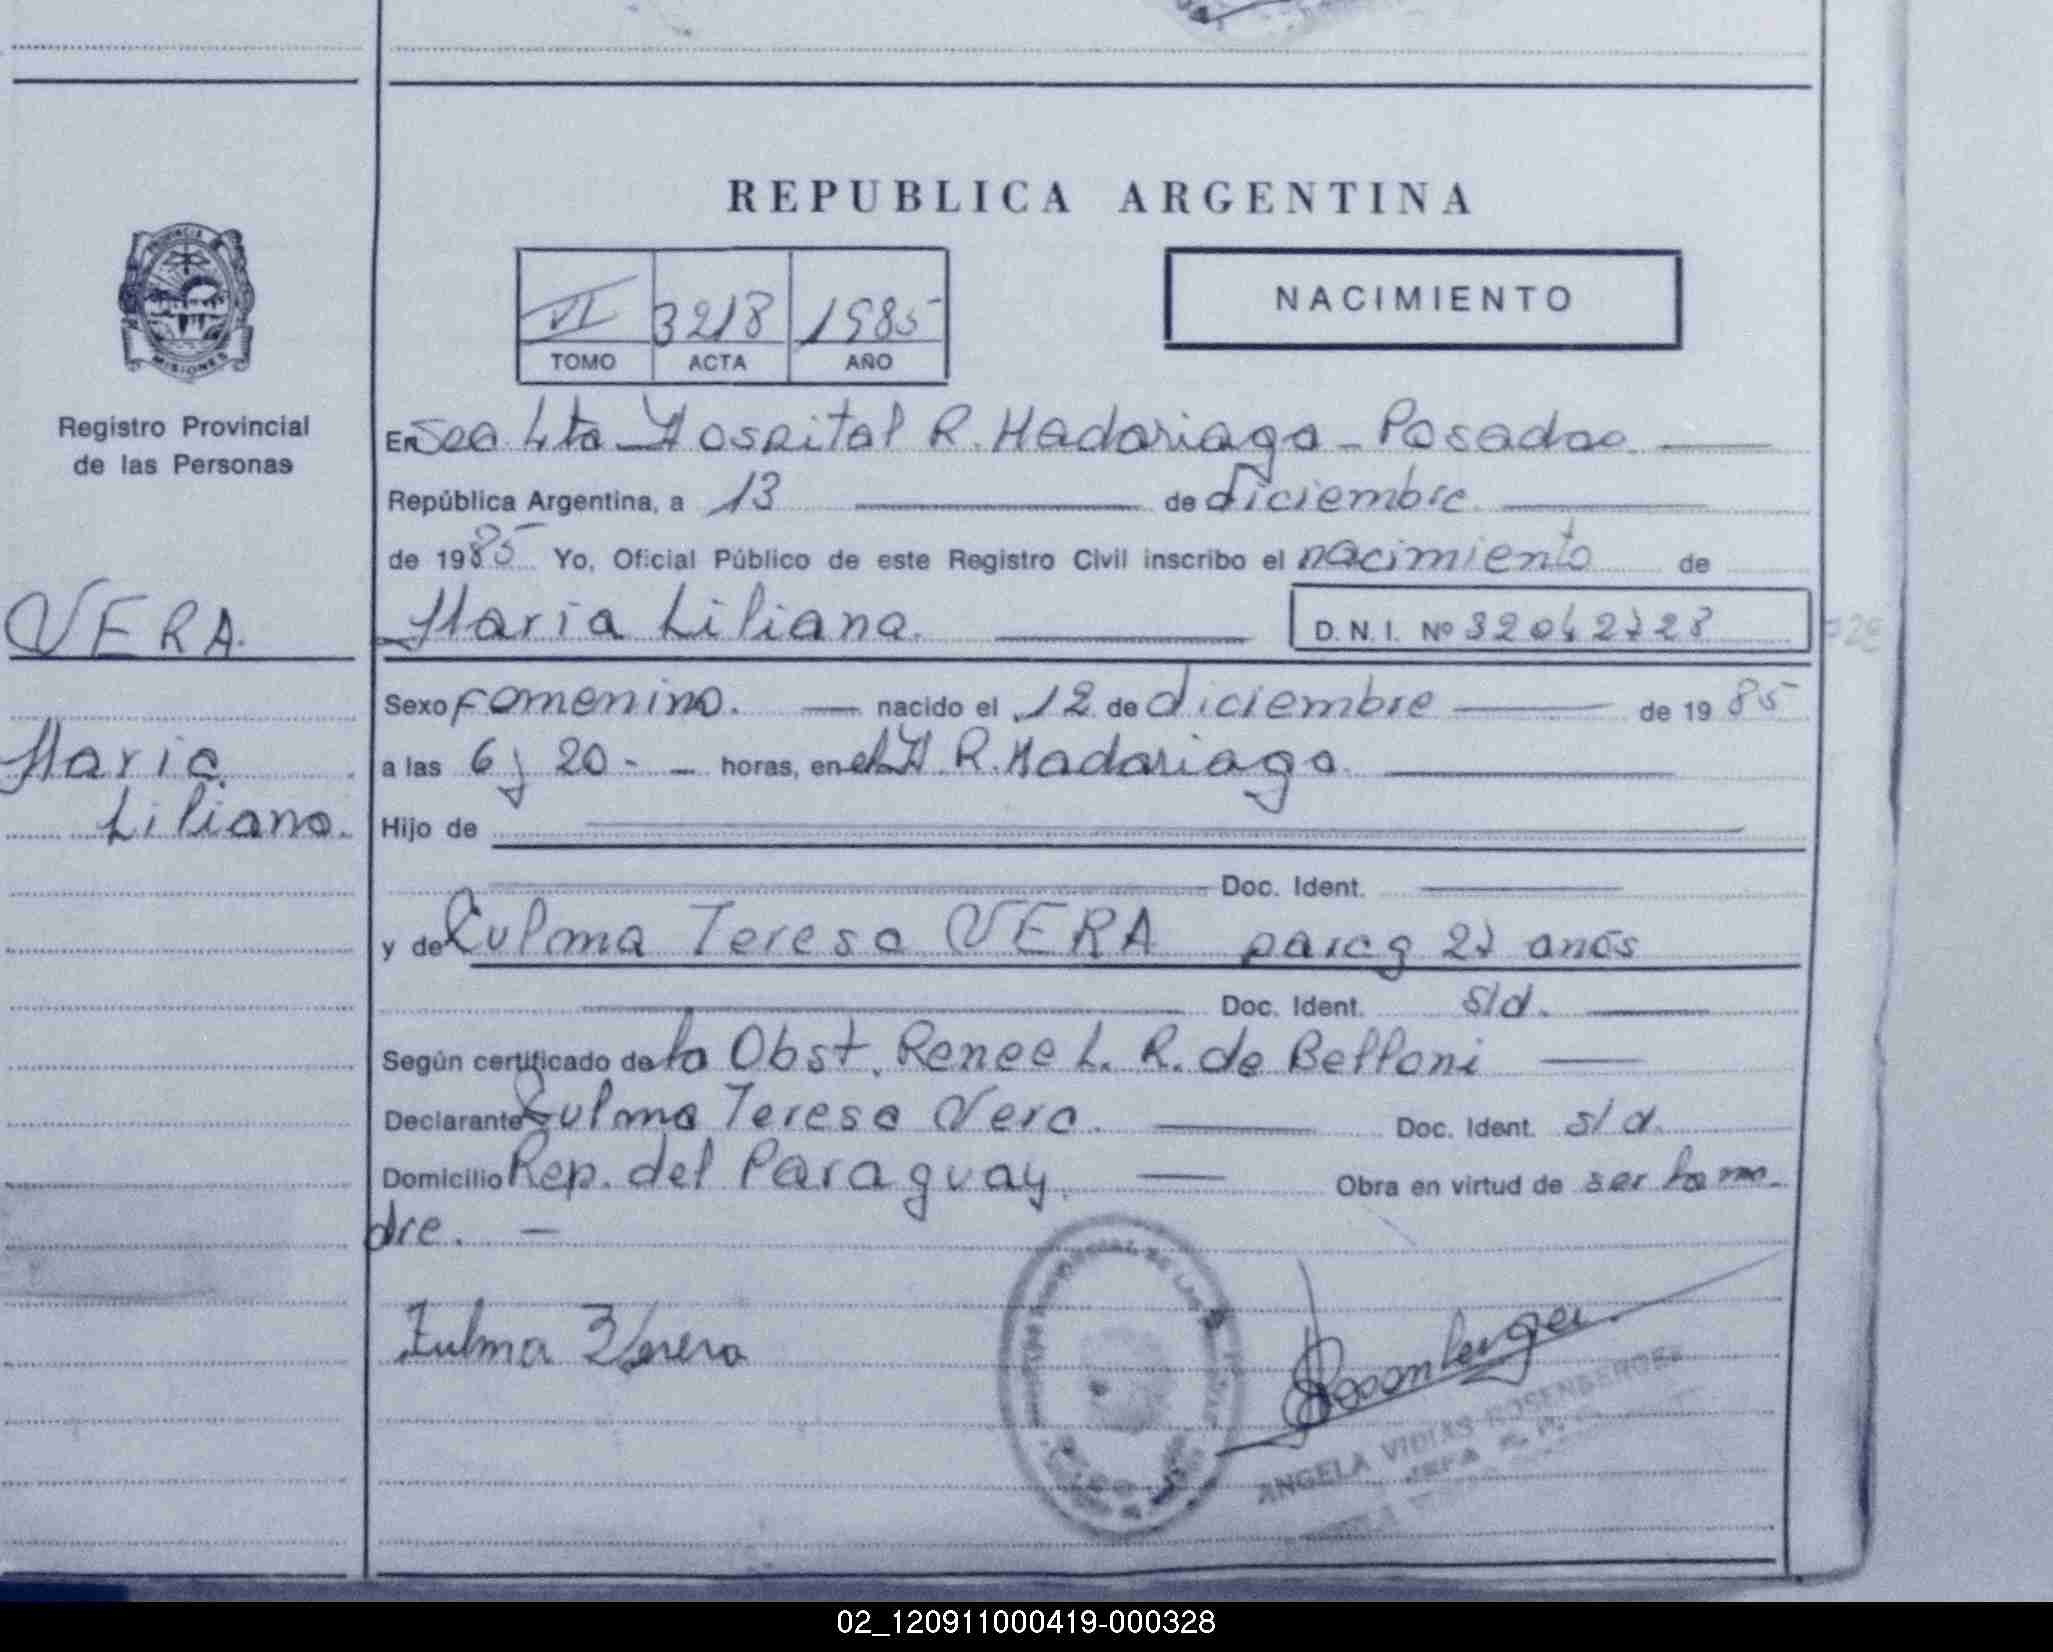 REPUBLICA ARGENTINA
VI 3218 1985
TOMO ACTA AÑO
NACIMIENTO
PROVINCIA
MISIONES
Registro Provincial
de las Personas
VERA.
Maria
Liliana.
En Sec. 4ta Hospital R. Madariaga - Posadas.
República Argentina, a 13 de diciembre.
de 1985 Yo, Oficial Público de este Registro Civil inscribo el nacimiento de
Maria Liliana.
D.N.I. Nº
Sexo femenino. nacido el 12 de diciembre de 1985
a las 6 y 20 - horas, en el H. R. Madariaga.
Hijo de
Doc. Ident.
y de Zulma Teresa VERA parag 27 anos
Doc. Ident. s/d.
Según certificado de la Obst. Renee L. R. de Belloni
Declarante Zulma Teresa Vera. Doc. Ident. s/d.
Domicilio Rep. del Paraguay. Obra en virtud de ser la ma-
dre. -
Zulma
ANGELA VIDIAS ROSENBERGER
JEFA
02_120911000419-000328